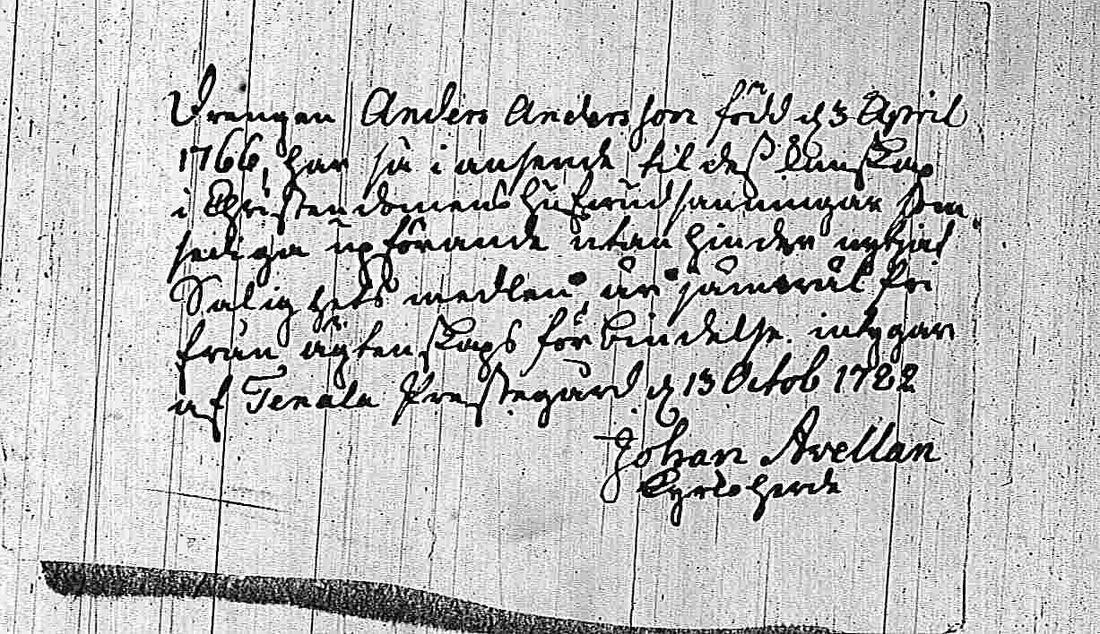 Drengen Anders Andersson född d 3 April
1766, har så i anseende til dess kunskap
i Christendomens hufwudsanningar som
sediga upförande utan hinder nytjat
Salighets medlen, är jämwäl fri
från ägtenskaps förbindelse. intygar
af Tenala Prestegård d 13 Octob 1782
Johan Avellan
Kyrkoherde